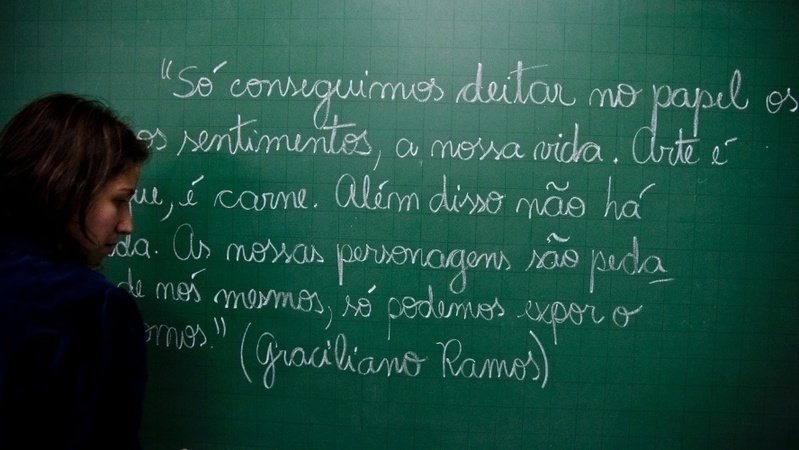 "Só conseguimos deitar no papel os
os sentimentos, a nossa vida. Arte é
ue, é carne. Além disso não há
da. As nossas personagens são peda
de nós mesmos, só podemos expor o
omos." (Graciliano Ramos)